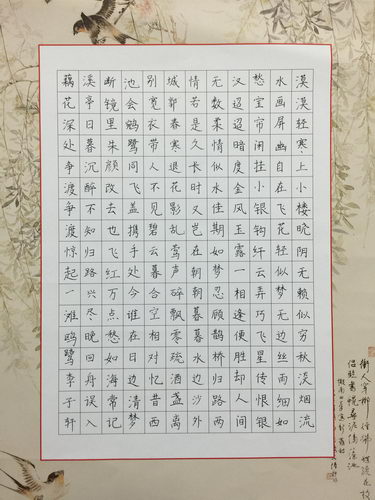 漠漠轻寒上小楼晓阴无赖似穷秋淡烟流
水画屏幽自在飞花轻似梦无边丝雨细如
愁宝帘闲挂小银钩纤云弄巧飞星传恨银
汉迢迢暗度金风玉露一相逢便胜却人间
无数柔情似水佳期如梦忍顾鹊桥归路两
情若是久长时又岂在朝朝暮暮水边沙外
城郭春寒退花影乱莺声碎飘零疏酒盏离
别宽衣带人不见碧云暮合空相对忆昔西
池会鹓鹭同飞盖携手处今谁在日边清梦
断镜里朱颜改去也飞红万点愁如海常记
溪亭日暮沉醉不知归路兴尽晚回舟误入
藕花深处争渡争渡惊起一滩鸥鹭李子轩